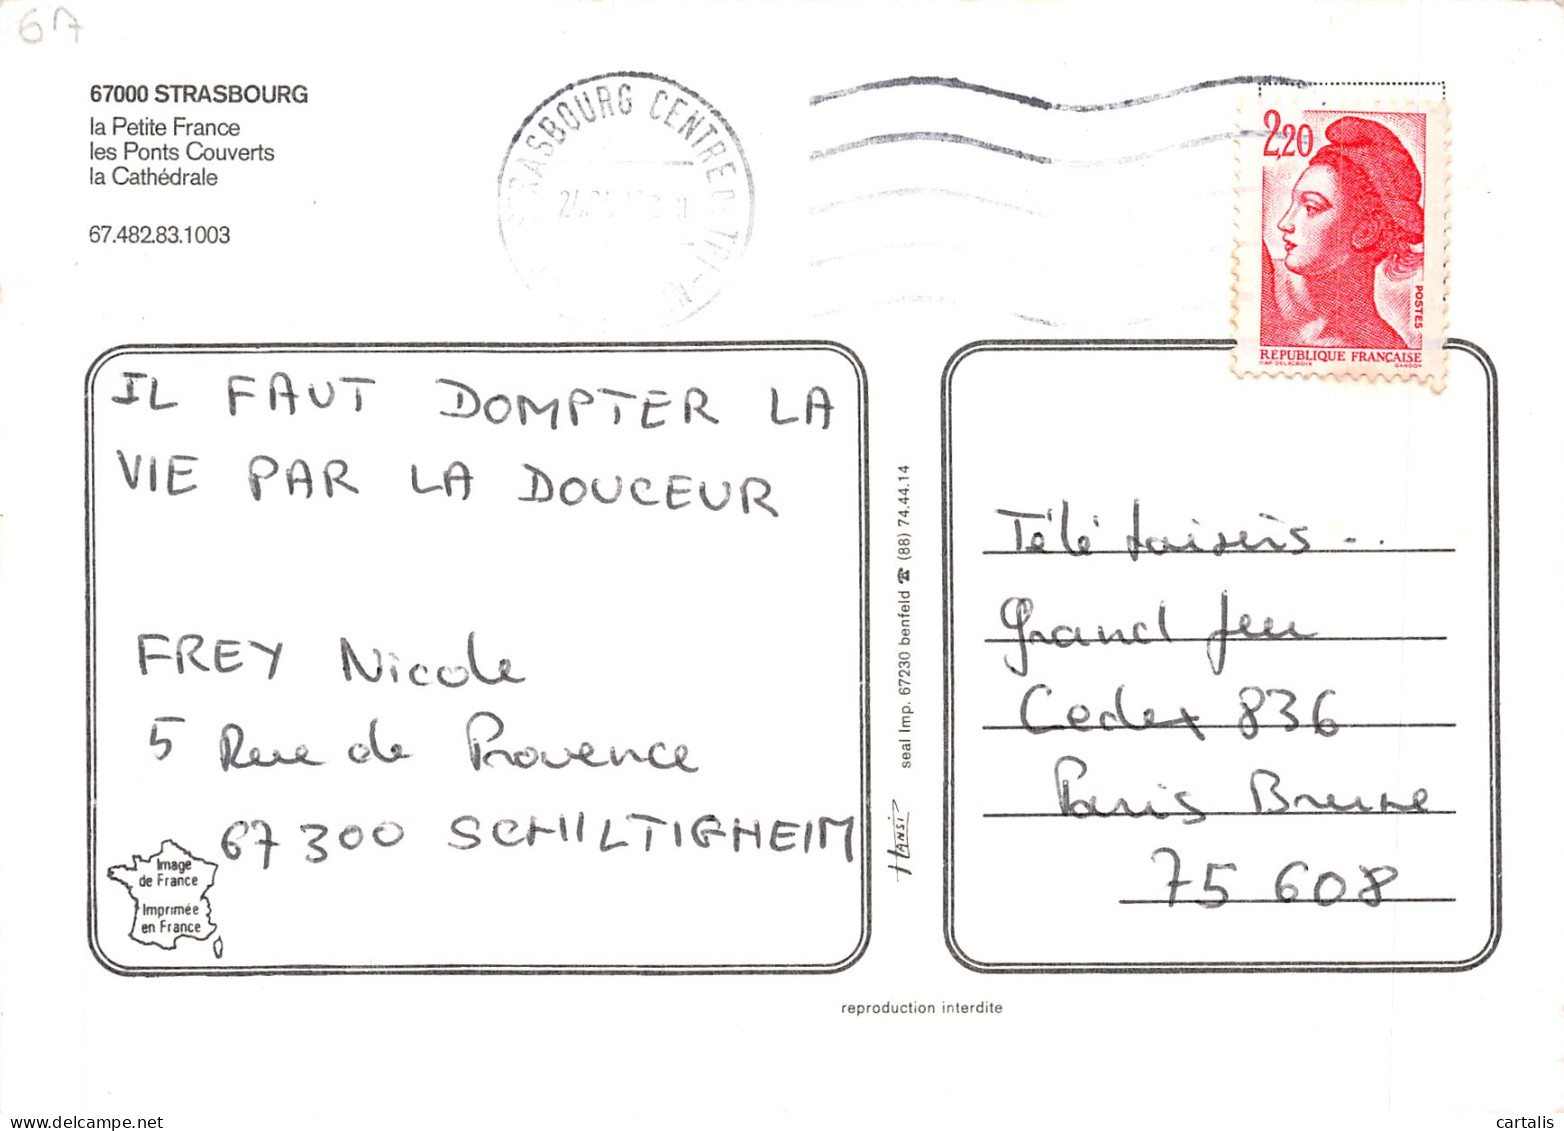 67
67000 STRASBOURG
la Petite France
les Ponts Couverts
la Cathédrale
67.482.83.1003
STRASBOURG CENTRE DE TRI
2,20
POSTES
REPUBLIQUE FRANÇAISE
D'AP. DELACROIX GANDON
IL FAUT DOMPTER LA
VIE PAR LA DOUCEUR
FREY Nicole
5 Rue de Provence
67300 SCHILTIGHEIM
Image
de France
Imprimée
en France
seal Imp. 67230 benfeld ☎ (88) 74.44.14
HANSI
Télé Loisirs ...
Grand Jeu
Cedex 836
Paris Brune
75 608
reproduction interdite
cartalis